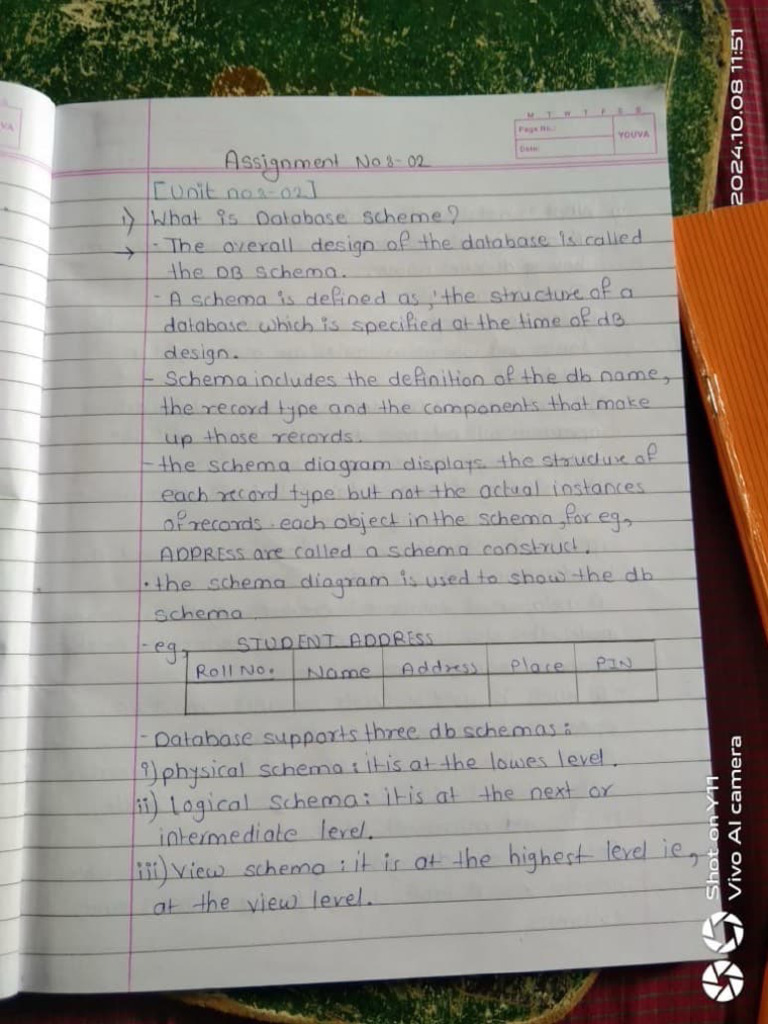 M T W T F S S
Page No.:
YOUVA
Date:
VA
Assignment No:-02
[Unit no:-02]
1) What is Database scheme?
→ - The overall design of the database is called
the DB schema.
- A schema is defined as, 'the structure of a
database which is specified at the time of dB
design.
- Schema includes the definition of the db name,
the record type and the components that make
up those records.
- the schema diagram displays the structure of
each record type but not the actual instances
of records. each object in the schema, for eg,
ADDRESS are called a schema construct.
• the schema diagram is used to show the db
schema.
- eg, STUDENT ADDRESS
Roll No. Name Address Place PIN
- Database supports three db schemas:
i) physical schema: it is at the lowes level.
ii) Logical schema: it is at the next or
intermediate level.
iii) View schema: it is at the highest level ie,
at the view level.
2024.10.08 11:51
Shot on Y11
Vivo AI camera